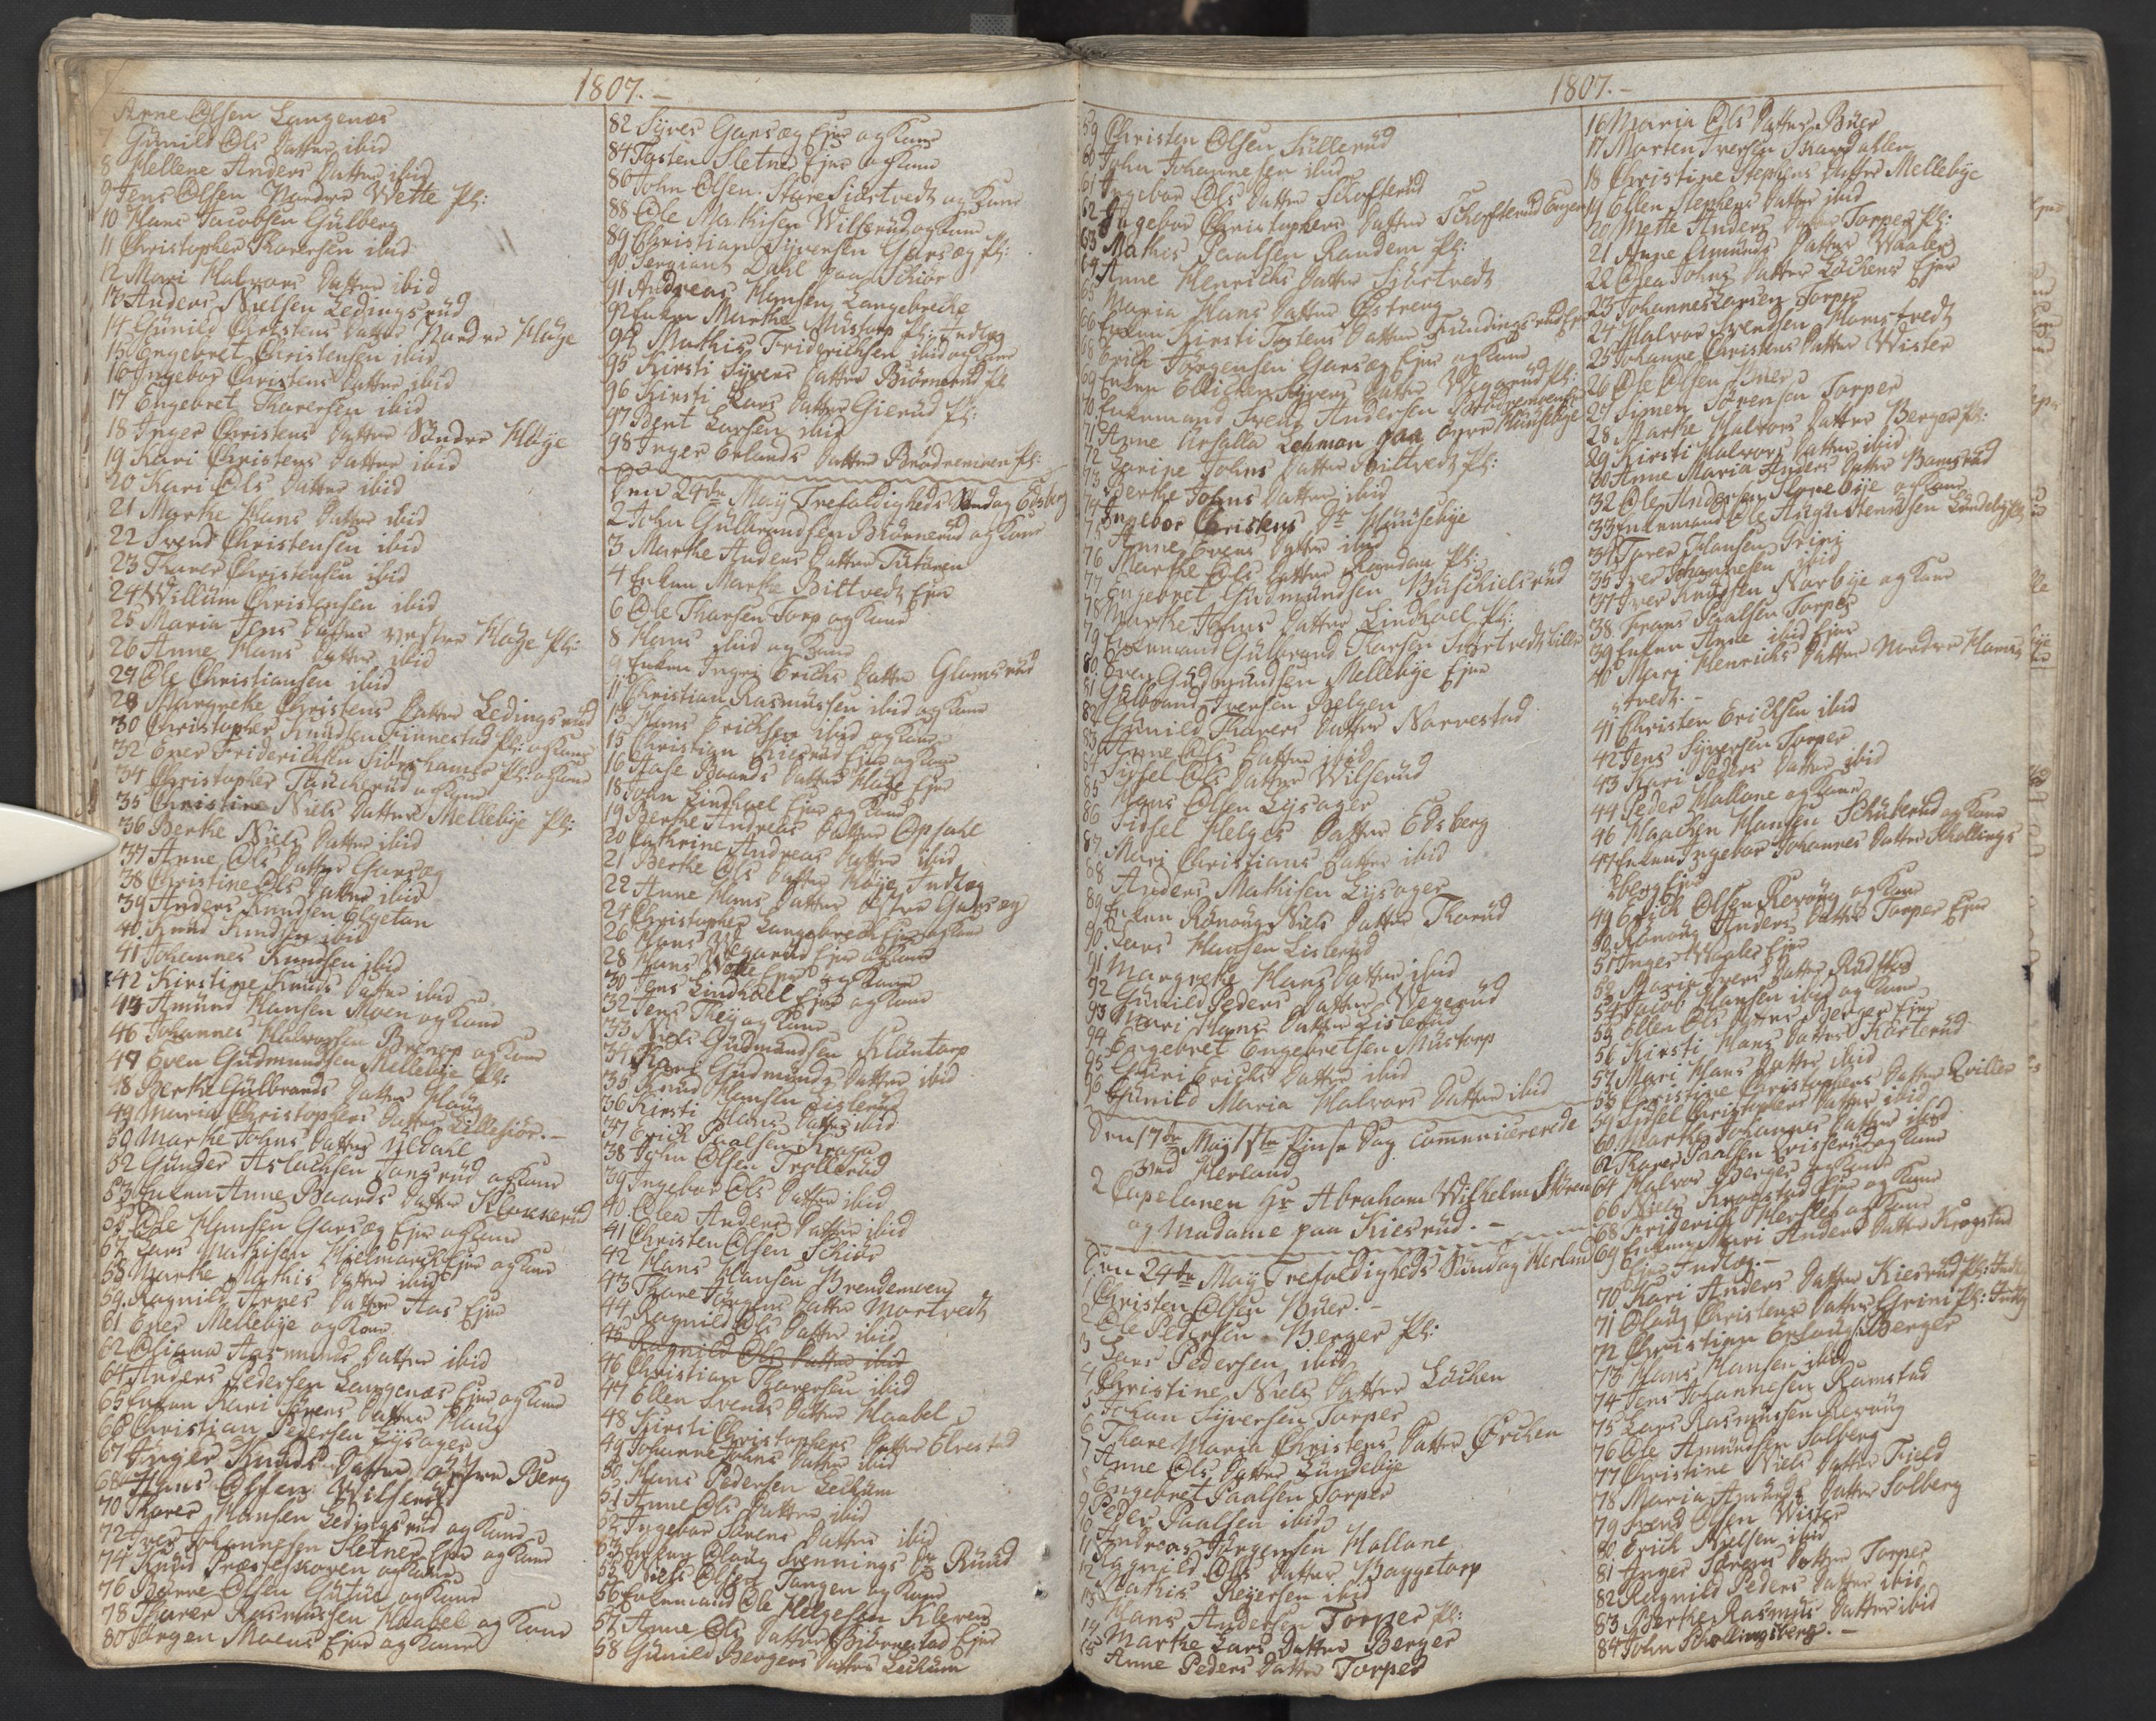 1807.
Arne Olsen Langenæs
7 Gunild Ols Datter ibid
8 Hellene Anders Datter ibid
9 Jens Olsen Nordre Wette Pl:
10 Hans Jacobsen Gulberg
11 Christopher Thoresen ibid
12 Mari Halvors Datter ibid
13 Anders Nielsen Ledingsrud
14 Gunild Christens Datter Nordre Høye
15 Engebret Christensen ibid
16 Ingebor Christens Datter ibid
17 Engebret Thoresen ibid
18 Inger Christens Datter Søndre Høye
19 Kari Christens Datter ibid
20 Kari Ols Datter ibid
21 Marthe Hans Datter ibid
22 Svend Christensen ibid
23 Thorer Christensen ibid
24 Willum Christensen ibid
25 Maria Jens Datter vestre Høye Pl:
26 Anne Hans Datter ibid
27 Ole Christiansen ibid
28 Margrethe Christens Datter Ledingsrud
30 Christopher Knudsen Finnestad Pl: og Kone
32 Even Friderichsen Pl: og Kone
34 Christopher og Kone
35 Christine Niels Datter Mellebye Pl:
36 Berthe Niels Datter ibid
37 Anne Ols Datter Garsæg
38 Christine Ols Datter ibid
39 Anders Knudsen Elgetun
40 Knud Knudsen ibid
41 Johannes Knudsen ibid
42 Kirstine Knuds Datter ibid
44 Amund Hansen Moen og Kone
46 Johannes Halvorsen og Kone
47 Even Gudmundsen Mellebye Pl:
48 Berthe Gulbrands Datter Houg
49 Maria Christophers Datter Lillesiør.-
50 Marthe Johns Datter
52 Gunder Aslachsen Tangrud og Kone
53 Enken Anne Baards Datter
55 Ole Hansen Garsæg Ejer og Kone
57 Lars Mathisen Ejer og Kone
58 Marthe Mathis Datter ibid
59 Ragnild Arnes Datter Aas Ejer
61 Even Mellebye og Kone
62 Oliana Aasmunds Datter ibid
64 Anders Pedersen Langenæs Ejer og Kone
65 Enken Kari Sørens Datter Houg
66 Christian Pedersen Lysager
67 Inger Knuds Datter østre Berg
68 Hans Olsen Wilserud
70 Thorer Hansen Ledingsrud og Kone
72 Iver Johannesen Sletner Ejer og Kone
74 Knud Præsteskoven og Kone
76 Olsen og Kone
78 Thorer Rasmussen Haabel og Kone
80 Jørgen Moens Ejer og Kone
82 Syver Garsæg Ejer og Kone
84 Tosten Sletner Ejer og Kone
86 John Olsen Store Siørtvedt og Kone
88 Ole Mathisen Wilserud og Kone
89 Christian Syversen Garsæg Pl:
90 Sergiant Dahl paa Schiør
91 Andreas Hansen Langebreche
92 Enken Marthe Mustorp Pl: Indlæg
94 Mathis Friderichsen ibid og Kone
95 Kirsti Syvers Datter Biørnerud Pl
96 Kirsti Lars Datter Gierud Pl:
97 Bent Larsen ibid
98 Inger Erlands Datter Pl:
Den 24de May Trefoldigheds Søndag Edsberg
2 John Gulbrandsen Biørnerud og Kone
3 Marthe Anders Datter
4 Enken Marthe Biltvedt Ejer
6 Ole Thorsen Torp og Kone
8 Hans ibid og Kone
9 Enken Ingri Erichs Datter Glomsrud
11 Christian Rasmussen ibid og Kone
13 Hans Erichsen ibid og Kone
15 Christian Kiesrud Ejer og Kone
16 Aase Baards Datter Høye Ejer
18 John Lindhoel Ejer og Kone
19 Berthe Andreas Datter Opsahl
20 Cathrine Andreas Datter ibid
21 Berthe Ols Datter Høye Indlæg
22 Anne Hans Datter vestre Garsæg
24 Christopher Langebrech Ejer og Kone
26 Hans Wegerud Ejer og Kone
28 Hans Wette Ejer og Kone
30 Jens Lindhoel Ejer og Kone
32 Jens og Kone
33 Niels Gudmundsen Kluntorp
34 Gudmunds Datter ibid
35 Knud Hansen Lislerud
36 Kirsti Hans Datter ibid
37 Erich Paalsen Kraga
38 John Olsen Trollerud
39 Ingebor Ols Datter ibid
40 Olea Anders Datter ibid
41 Christen Olsen Schiør
42 Hans Hansen Brendemoen
43 Thore Jørgens Datter Mortvedt
44 Ragnild Ols Datter ibid
45 Ragnild Ols Datter ibid
46 Christian Thoresen ibid
47 Ellen Svends Datter Haabel
48 Kirsti Christophers Datter Elvestad
49 Johanne Johns Datter ibid
50 Hans Pedersen Lechum
51 Anne Ols Datter ibid
52 Ingebor Sørens Datter ibid
53 Enken Olaug Svennings Dr Ruud
55 Niels Olsen Tangen og Kone
56 Enkemand Ole Helgesen Kleven
57 Anne Ols Datter Biørnestad Ejer
58 Gunild Bergers Datter Lechum
1807.-
59 Christen Olsen Sullerud
60 John Johannesen ibid
61 Ingebor Ols Datter Schofterud
62 Ingebor Christophers Datter Schofterud Eugen
63 Mathis Paalsen Randem Pl:
64 Anne Henrichs Datter Siørtvedt
65 Maria Hans Datter Østreng
66 Enken Kirsti Tostens Datter Fundingsrud Ejer
68 Erich Jørgensen Garsæg Ejer og Kone
69 Enken Ellichen Syvers Datter Wegerud Pl:
70 Enkemand Svend Andersen
71 Anne Ursalla Lehman paa øvre Hunsebye
72 Karine Johns Datter Biltvedt Pl:
73 Berthe Johns Datter ibid
74 Ingebor Christens Dr Hunsebye
75 Anne Evens Datter ibid
76 Marthe Ols Datter Randem Pl:
77 Engebret Gudmundsen Buschielsrud
78 Marthe Johns Datter Lindhoel Pl:
79 Enkemand Gulbrand Thorsen Siørtvedt Lille
80 Iver Gudmundsen Mellebye Ejer
81 Gulbrand Iversen Helgen
82 Gunild Thorers Datter Narvestad
83 Anne Ols Datter ibid
84 Sissel Ols Datter Wilserud
85 Hans Olsen Lysager
86 Sidsel Helges Datter Edsberg
87 Mari Christians Datter ibid
88 Anders Mathisen Lysager
89 Enken Rønoug Niels Datter Thorud
90 Lars Hansen Lislerud
91 Margrethe Hans Datter ibid
92 Gunild Peders Datter Wegerud
93 Mari Hans Datter Lislerud
94 Engebret Engebretsen Mustorp
95 Guri Erichs Datter ibid
96 Gunild Maria Halvors Datter ibid
Den 17de May 1ste Pinse Dag Communicerede
ved Herland
2 Capelanen Hr Abraham Wilhelm Støren
og Madame paa Kiesrud.-
Den 24de May Trefoldigheds Søndag Herland
1 Christen Olsen Buer.-
2 Ole Pedersen Berger Pl:
3 Lars Pedersen ibid
4 Christine Niels Datter Løchen
5 Johan Syversen Torper
6 Thore Maria Christens Datter Ørchen
7 Anne Ols Datter Lundebye
8 Engebret Paalsen Torper
9 Peder Paalsen ibid
10 Andreas Jørgensen Hallane
11 Ragnild Ols Datter Baggetorp
12 Mathis Reyersen ibid
13 Hans Andersen Torper Pl:
14 Marthe Lars Datter Berger
15 Anne Peders Datter Torper
16 Maria Ols Datter Buer
17 Morten Iversen
18 Christine Stephens Datter Mellebye
19 Ellen Stephens Datter ibid
20 Mette Anders Datter Torper Pl:
21 Anne Amunds Datter Waaler
22 Olea Johns Datter Løchens Ejer
23 Johannes Larsen Torper
24 Halvor Svendsen Homstvedt
25 Johanne Christens Datter Wister
26 Ole Olsen Buer
27 Simen Sørensen Torper
28 Marthe Halvors Datter Berger Pl:
29 Kirsti Halvors Datter ibid
30 Anne Maria Anders Datter Ramstad
32 Ole Andersen og Kone
33 Enkemand Ole Augustinusen Lundebye Pl:
34 Torer Hansen Grini
35 Iver Johannesen ibid
37 Iver Knudsen Narbye og Kone
38 Frans Paalsen Torper
39 Enken Anne ibid Ejer
40 Mari Henrichs Datter Nordre Homs-
tvedt.-
41 Christen Erichsen ibid
42 Jens Syversen Torper
43 Kari Peders Datter ibid
44 Peder Hallane og Kone
46 Haachen Hansen Schuberud og Kone
47 Enken Ingebor Johannes Datter Schollings
berg Ejer
49 Erich Olsen Revoug og Kone
50 Rønoug Anders Datter Torper Ejer
51 Inger Waaler Ejer
52 Maria Ivers Datter
54 Jacob Hansen ibid og Kone
55 Ellen Ols Datter Berger Ejer
56 Kirsti Hans Datter Kørterud
57 Mari Hans Datter ibid
58 Christine Christophers Datter Qviller
59 Sidsel Christophers Datter ibid
60 Marthe Johannes Datter ibid
62 Thorer Paalsen og Kone
64 Halvor Berger og Kone
66 Niels Krogstad Ejer og Kone
68 Friderich Herslep og Kone
69 Enken Mari Anders Datter Krogstad
Ejer Indlæg.-
70 Kari Anders Datter Kiesrud Pl: Indl
71 Olaug Christens Datter Grini Pl: Indlg
72 Christian Berger
73 Hans Hansen ibid
74 Jens Johannesen Ramstad
75 Lars Rasmussen Revoug
76 Ole Amundsen Solberg
77 Christine Niels Datter Field
78 Maria Amunds Datter Solberg
79 Svend Olsen Wister
80 Erich Nielsen ibid
81 Inger Sørens Datter Torper
82 Ragnild Peders Datter ibid
83 Berthe Rasmus Datter ibid
84 John Schollingsberg.-